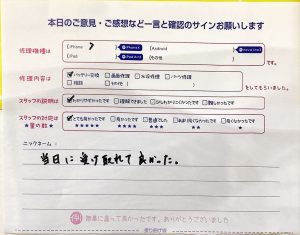 本日のご意見・ご感想など一言と確認のサインお願いします
修理機種は
iPhone 7
iPhoneX
Android
iPad
iPad Air2
その他
です。
修理内容は
バッテリー交換 画面修理 水没修理 パーツ修理
相談 その他( )
をしてもらいました。
スタッフの説明は
わかりやすかったです 理解できました 少しわかりにくかったです 難しかったです
スタッフの対応は
★星の数★
とても良かったです 良かったです 普通でした あまり良くなかったです 良くなかったです
★★★★★ ★★★★ ★★★ ★★ ★
ニックネーム:
当日に受け取れて良かった。
修理に出って良かったです。ありがとうございました